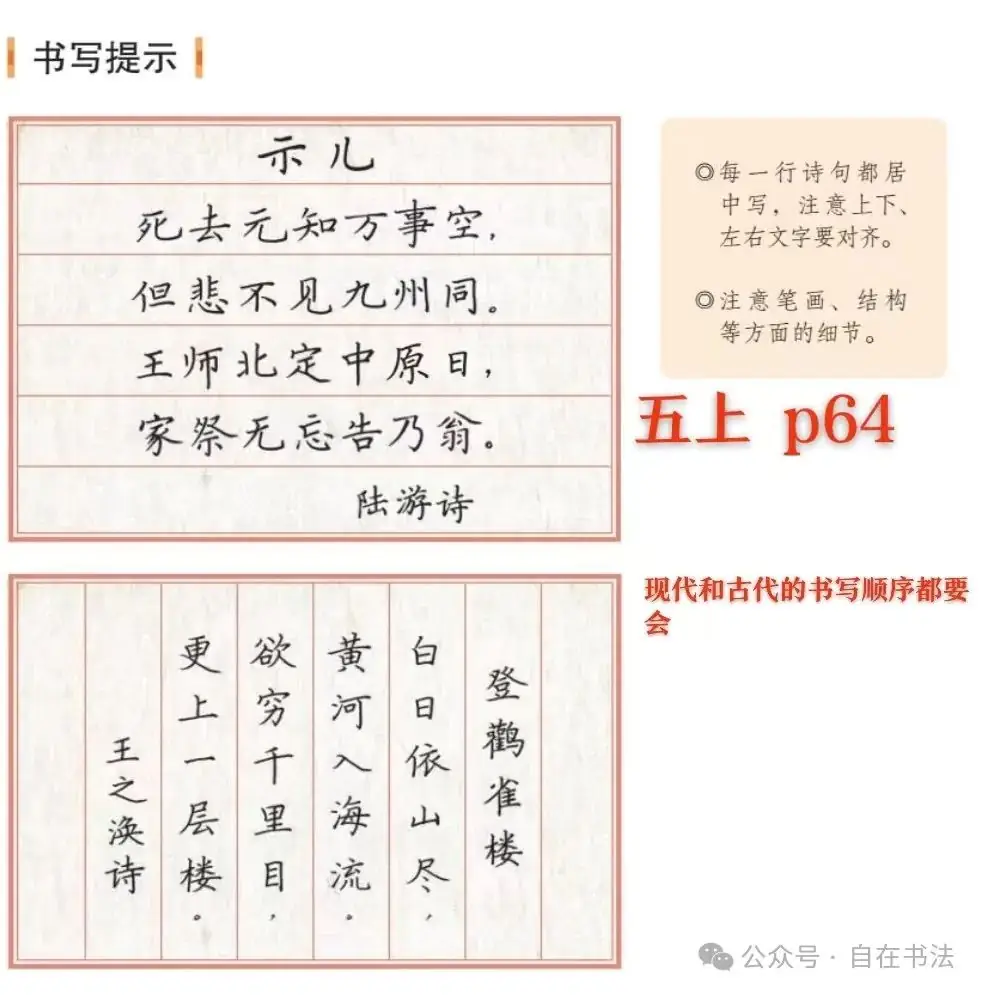 书写提示
示儿
死去元知万事空，
但悲不见九州同。
王师北定中原日，
家祭无忘告乃翁。
陆游诗
◎每一行诗句都居
中写，注意上下、
左右文字要对齐。
◎注意笔画、结构
等方面的细节。
五上 p64
现代和古代的书写顺序都要
会
登鹳雀楼
白日依山尽，
黄河入海流。
欲穷千里目，
更上一层楼。
王之涣诗
公众号·自在书法